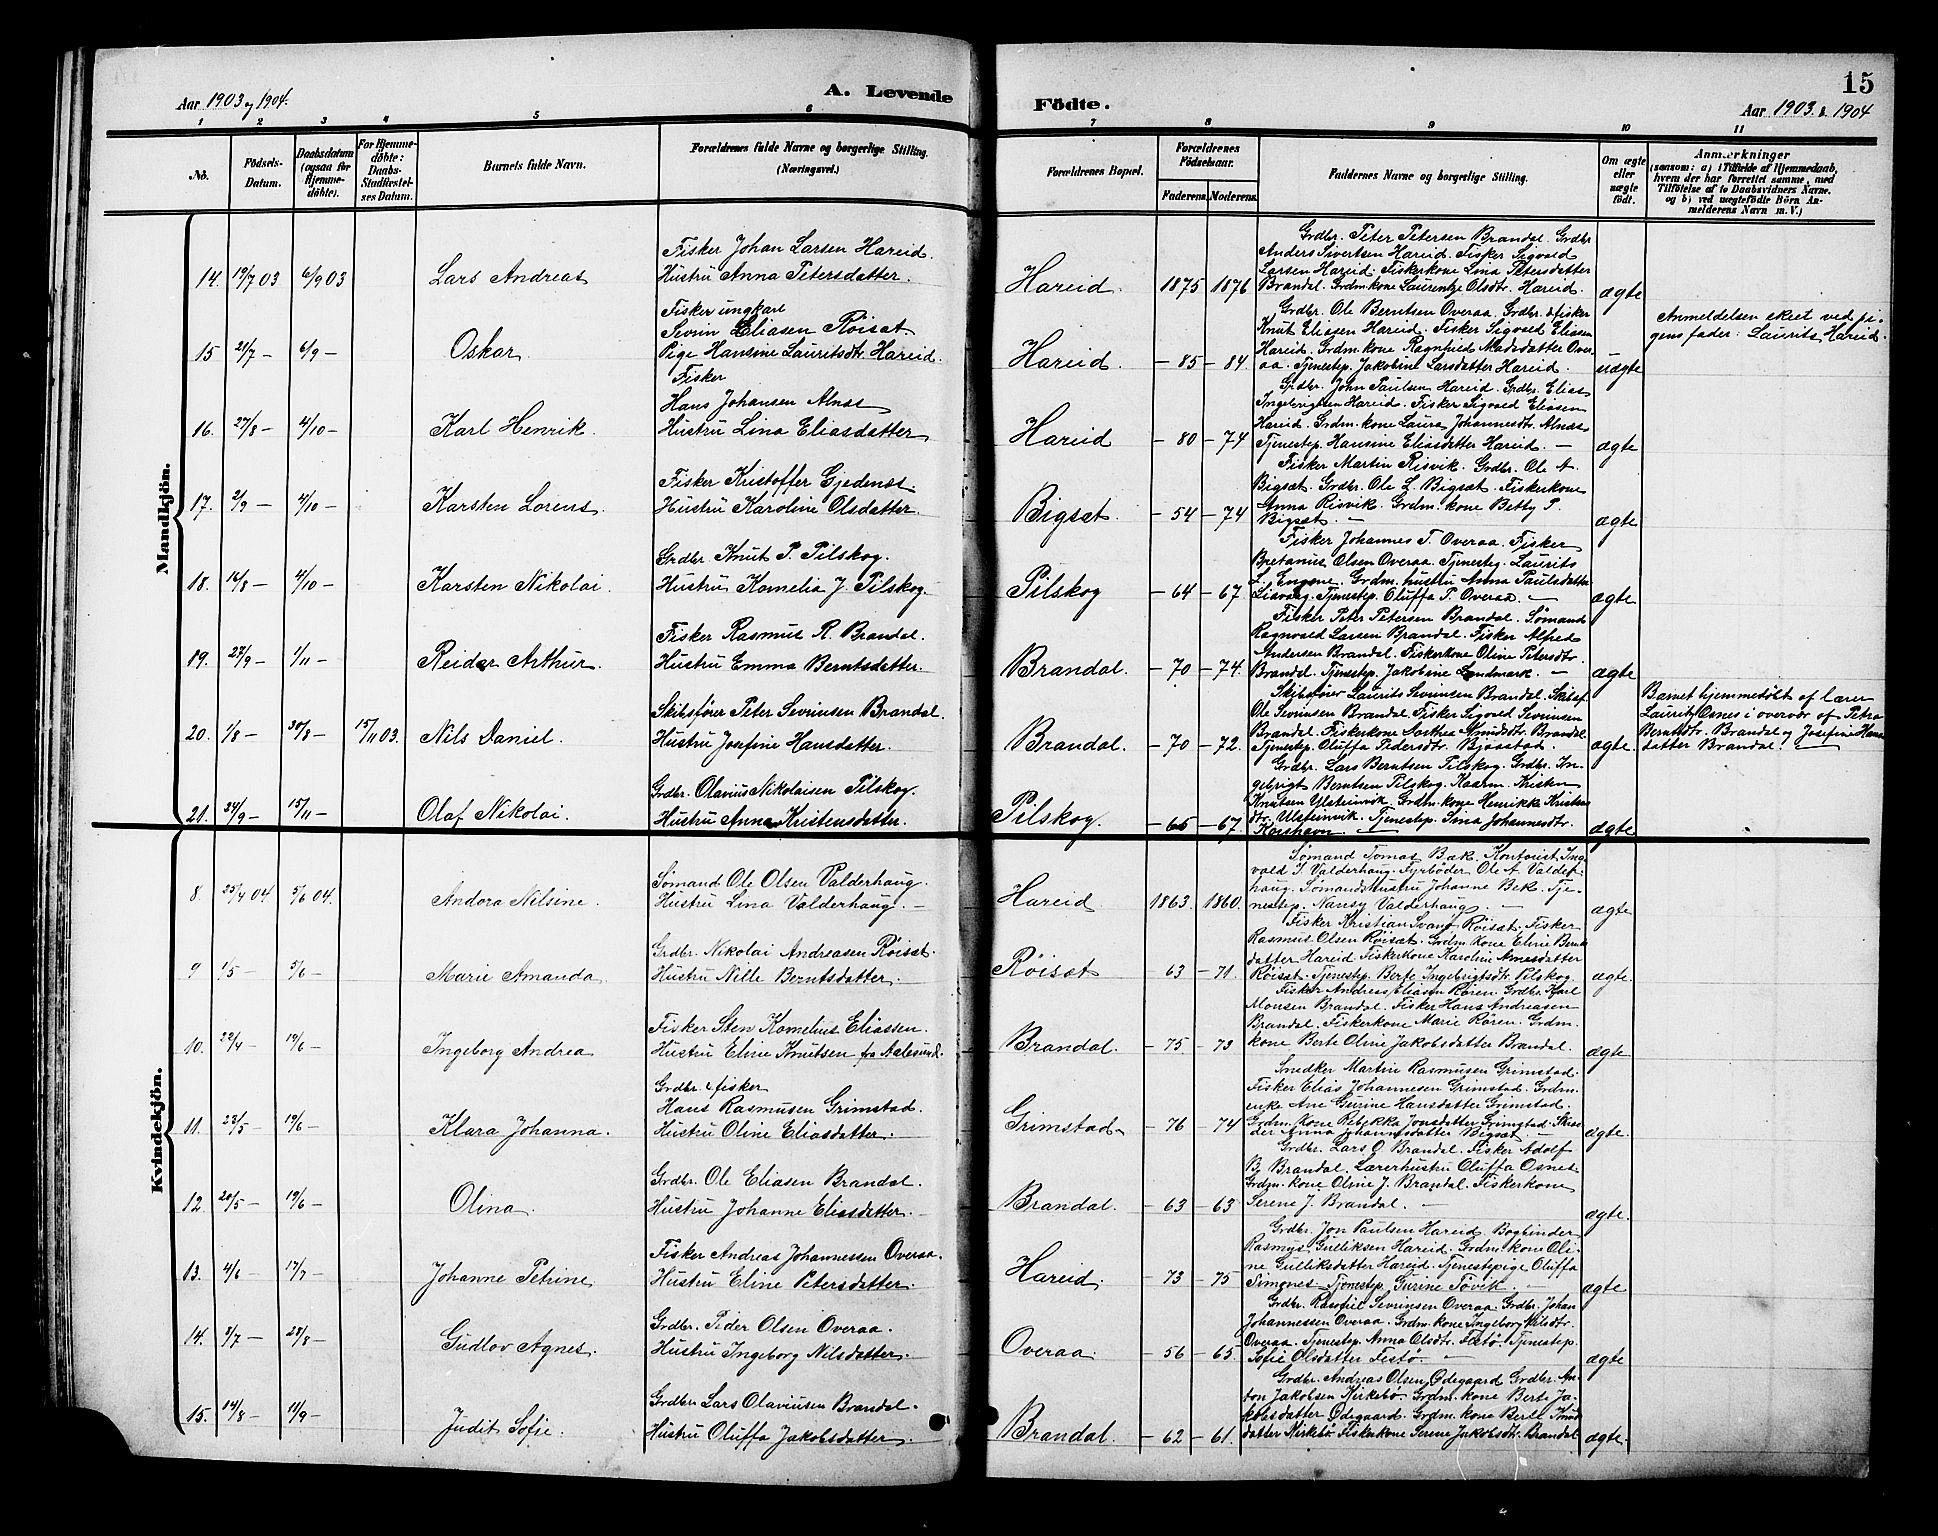 15
Aar 1903 og 1904.
A. Levende
Födte.
Aar 1903 & 1904
1 2 3 4 5 6 7 8 9 10 11
No.
Födsels-
Datum.
Daabsdatum
(ogsaa for
Hjemme-
döbte).
For Hjemme-
döbte:
Daabs-
Stadfæstel-
ses Datum.
Barnets fulde Navn.
Forældrenes fulde Navne og borgerlige Stilling.
(Næringsvei.)
Forældrenes Bopæl.
Forældrenes
Födselsaar.
Faderens. Moderens.
Faddernes Navne og borgerlige Stilling.
Om ægte
eller
uægte
födt.
Anmærkninger
(saasom: a) i Tilfælde af Hjemmedaab,
hvem der har forrettet samme, med
Tilföielse af to Daabsvidners Navne,
og b) ved uægtefödte Börn An-
melderens Navn m. V.)
Mandkjön.
14. 19/7 03 6/9 03 Lars Andreas
Fisker Johan Larsen Hareid.
Hustru Anna Petersdatter.
Hareid. 1875 1876
Grdbr. Peter Petersen Brandal. Grdbr
Anders Sivertsen Hareid. Fisker Sigvald
Larsen Hareid. Fiskerkone Lina Petersdatter
Brandal. Grdm.kone Laurentze Olsdtr. Hareid.
ægte
15 21/7 - 6/9 - Oskar
Fisker ungkarl
Sevrin Eliasen Röiset
Pige Hansine Lauritsdtr. Hareid.
Hareid. - 85 - 84
Grdbr. Ole Berntsen Overaa. Grdbr. & fisker
Knut Eliassen Hareid. Fisker Sigvald Eliasen
Hareid. Grdm.kone Ragnfrid Madsdatter Over-
aa. Tjenestep. Jakobine Larsdatter Hareid.
uægte
Anmeldelsen skeet ved pi-
gens fader: Laurits Hareid.
16. 27/8 - 4/10 - Karl Henrik.
Fisker
Hans Johansen Alnæs
Hustru Lina Eliasdatter
Hareid - 80 - 74
Grdbr. John Paulsen Hareid. Grdbr Elias
Ingebrigtsen Hareid. Fisker Sigvald Eliasen
Hareid. Grdm.kone Laura Johannesdtr. Alnæs
Tjenestep. Hansine Eliasdatter Hareid. -
ægte
17. 2/9 - 4/10 - Karsten Lorens
Fisker Kristoffer Gjedenes.
Hustru Karoline Olsdatter
Bigset - 54 - 74
Fisker Martin Risvik. Grdbr. Ole A.
Bigsæt. Grdbr. Ole L. Bigsæt. Fiskerkone
Anna Risvik. Grdm.kone Betty P.
Bigsæt. -
ægte
18. 16/8 - 4/10 - Karsten Nikolai.
Grdbr Knut P. Pilskog.
Hustru Kornelia J. Pilskog.
Pilskog - 64 - 67
Fisker Johannes T. Overaa. Fisker
Bretanius Olsen Overaa. Tjenestg. Laurits
L. Engene. Grdm. hustru Anna Paulsdatter
Liavaag. Tjenestep. Oluffa P. Overaa. -
ægte
19. 27/9 - 1/11 - Reidar Arthur.
Fisker Rasmus R. Brandal.
Hustru Emma Berntsdatter.
Brandal. - 70 - 74.
Fisker Peter Petersen Brandal. Sömand
Ragnvald Larsen Brandal. Fisker Alfred
Andersen Brandal. Fiskerkone Oline Petersdtr.
Brandal. Tjenestep. Jakobine Landmark. -
ægte
20. 1/8 - 30/8 - 15/11 03. Nils Daniel.
Skibsförer Peter Sevrinsen Brandal.
Hustru Josefine Hansdatter.
Brandal. - 70 - 72.
Skibsförer Laurits Sevrinsen Brandal. Skibsf.
Ole Sevrinsen Brandal. Fisker Sigvald Sevrinsen
Brandal. Fiskerkone Northea Knudsdtr. Brandal.
Tjenestep. Oluffa Pedersdtr. Bjaastad.
ægte.
Barnet hjemmedöbt af lærer
Lauritz Osnes i overvær af Petra
Berntsdtr. Brandal og Josefine Hans-
datter Brandal. -
21. 24/9 - 15/11 - Olaf Nikolai.
Grdbr. Olavius Nikolaisen Pilskog.
Hustru Anna Kristensdatter.
Pilskog. - 65 - 67.
Grdbr. Lars Berntsen Pilskog. Grdbr. In-
gebrigt Berntsen Pilskog. Kaarm. Kristen
Knutsen Ulsteinvik. Grdm.kone Henrikka Knuts-
dtr. Ulsteinvik. Tjenestep. Sina Johannesdtr.
Korshavn -
ægte
Kvindekjön.
8. 25/4 04 5/6 04. Andora Nilsine.
Sömand Ole Olsen Valderhaug.
Hustru Lina Valderhaug. -
Hareid 1863. 1860.
Sömand Tomas Bak. Kontorist Ing-
vald I. Valderhaug. Fyrböder Ole A. Valder-
haug. Sömandshustru Johanne Bek. Tje-
nestep. Nansy Valderhaug. -
ægte
9 1/5 - 5/6 - Marie Amanda.
Grdbr. Nikolai Andreasen Röiset.
Hustru Nille Berntsdatter.
Röisæt - 63 - 71.
Fisker Kristian Svanø Röisæt. Fisker
Rasmus Olsen Röisæt. Grdm.kone Eline Bernts-
datter Hareid. Fiskerkone Karoline Arnesdatter
Röisæt. Tjenestep. Berte Ingebrigtsdtr. Pilskog
ægte.
10. 22/4 - 19/6 - Ingeborg Andrea
Fisker Sten Kornelius Eliassen.
Hustru Eline Knutsen fra Aalesund.
Brandal. - 75 - 73
Fisker Andreas Eliasen Røren. Grdbr. Karl
Monsen Brandal. Fisker Hans Andreasen
Brandal. Fiskerkone Marie Røren. Grdm.
kone Berte Oline Jakobsdatter Brandal.
ægte
11. 23/5 - 19/6 - Klara Johanna.
Grdbr. & fisker
Hans Rasmusen Grimstad.
Hustru Oline Eliasdatter.
Grimstad - 76 - 74
Snedker Martin Rasmusen Grimstad.
Fisker Elias Johannesen Grimstad. Grdm.
enke Ane Gurine Hansdatter Grimstad.
Grdm. Kone Rebekka Jonsdatter Grimstad.
Anna Johannesdatter Bigsæt. -
ægte.
12. 20/5 - 19/6 - Olina.
Grdbr. Ole Eliasen Brandal.
Hustru Johanne Eliasdatter.
Brandal. - 63 - 63
Grdbr. Lars O. Brandal. Fisker Adolf
B. Brandal. Lærerhustru Oluffa Osnes.
Grdm.kone Oline J. Brandal. Fiskerkone
Serene J. Brandal. -
ægte.
13. 4/6 - 17/7 - Johanne Petrine
Fisker Andreas Johannessen Overaa.
Hustru Eline Petersdatter.
Hareid. - 73 - 75
Grdbr. Jon Paulsen Hareid. Bogbinder
Rasmus Gulliksen Hareid. Grdm.kone Oli-
ne Gulliksdatter Hareid. Tjenestepige Oluffa
Simones. Tjenestep. Gurine Tøvik. -
ægte
14. 3/7 - 28/8 - Gudlov Agnes.
Grdbr. Peder Olsen Overaa.
Hustru Ingeborg Nilsdatter.
Overaa. - 56 - 65.
Grdbr. Rasmus Sevrinsen Overaa. Grdbr. Johan
Johannessen Overaa. Grdm.kone Ingeborg Nilsdtr.
Overaa. Tjenestep. Anna Olsdtr. Festø. Tjenestep.
Sofie Olsdatter Festø. -
ægte
15. 14/8 - 11/9 - Judit Sofie.
Grdbr Lars Olaviusen Brandal.
Hustru Oluffa Jakobsdatter.
Brandal. - 62 - 61.
Grdbr. Andreas Olsen Ødegaard. Grdbr. An-
ton Jakobsen Kirkebø. Grdm.kone Berte Ja-
kobsdatter Ødegaard. Grdm.kone Berte Knuts-
datter Kirkebø. Fiskerkone Serene Jakobsdtr. Brandal
ægte.